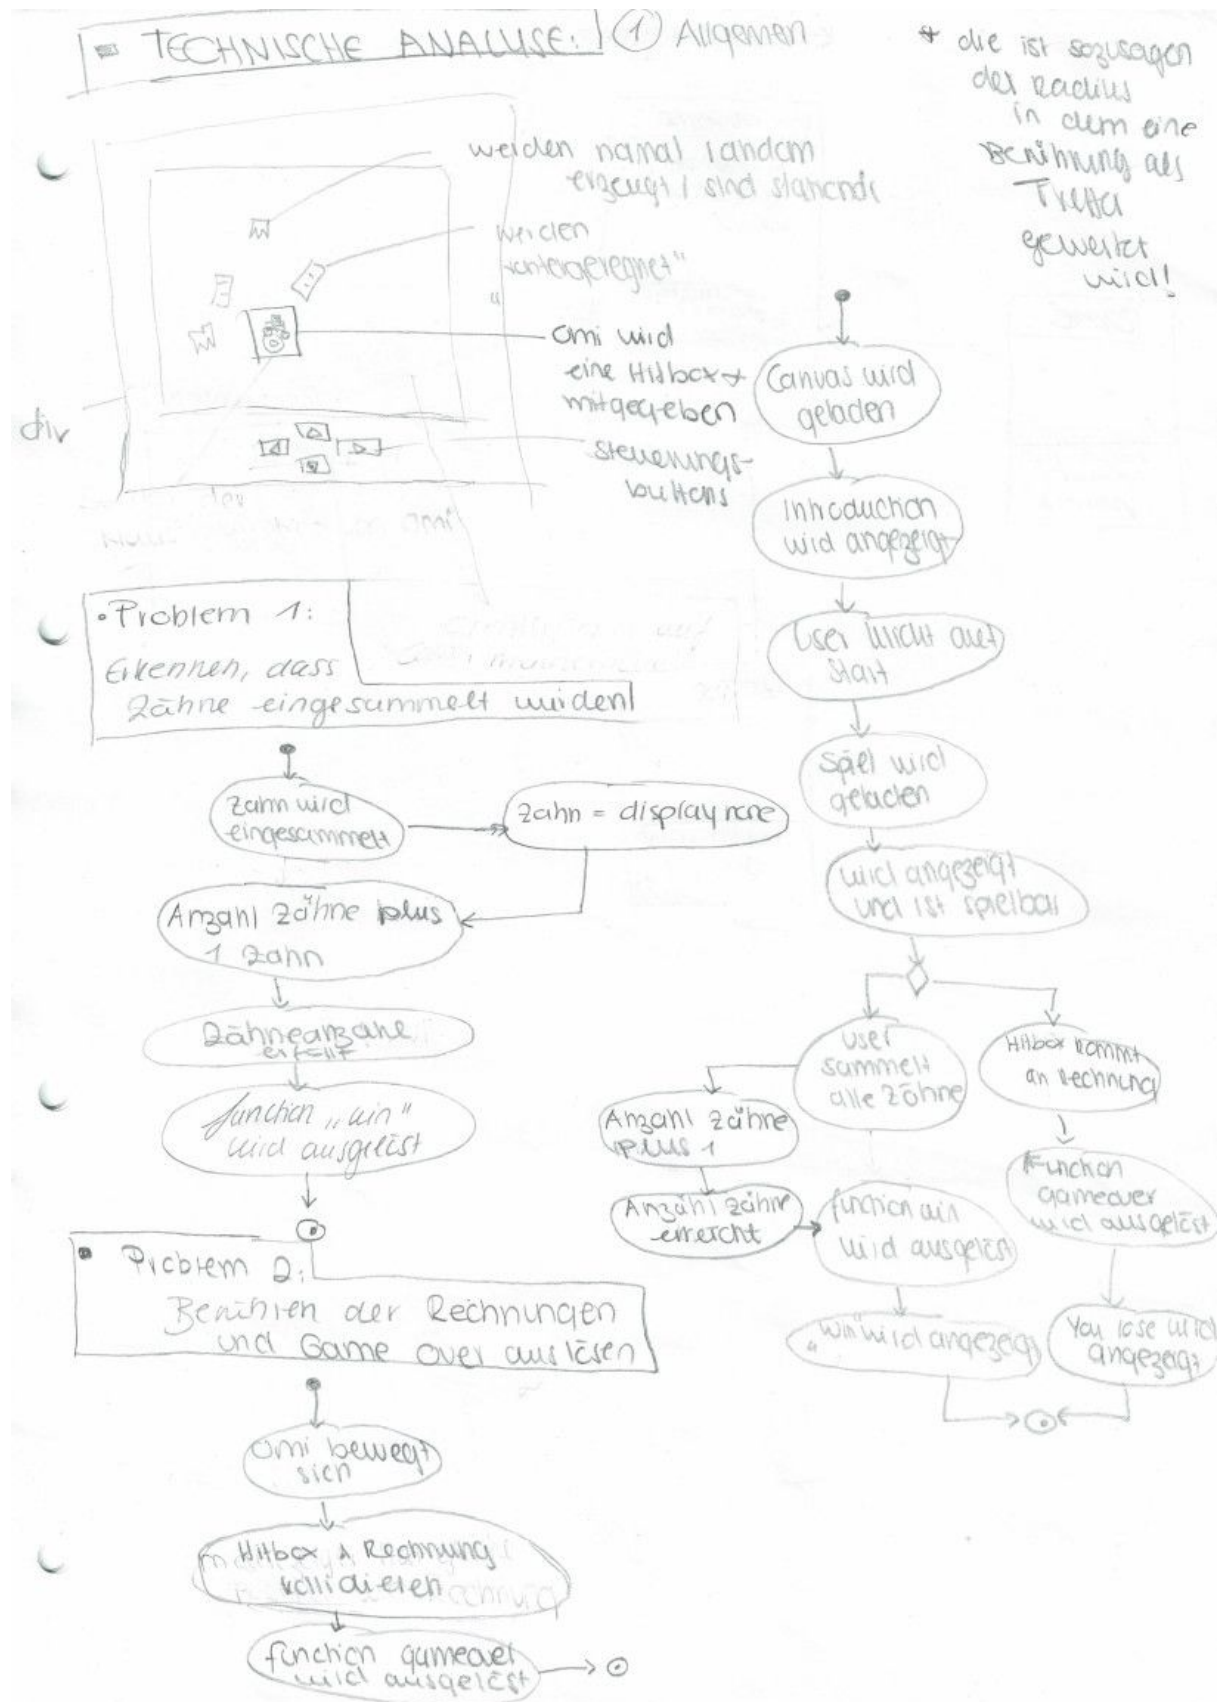 TECHNISCHE ANALYSE: 1 Allgemein
* die ist sozusagen
der Radius
in dem eine
Berührung als
Treffer
gewertet
wird!
werden random
erzeugt / sind
werden
"
Omi wird
eine Hitbox *
mitgegeben
div
steuerungs-
buttons
der
Omi
• Problem 1:
Erkennen, dass
Zähne eingesammelt wurden!
Zahn wird
eingesammelt
Zahn = display none
Anzahl Zähne plus
1 Zahn
Zähneanzahl
erfüllt
function „win"
wird ausgelöst
• Problem 2:
Berühren der Rechnungen
und Game over auslösen
Omi bewegt
sich
Hitbox & Rechnung
kollidieren
function gameover
wird ausgelöst
Canvas wird
geladen
Introduction
wird angezeigt
User klickt auf
Start
Spiel wird
geladen
wird angezeigt
und ist spielbar
User
sammelt
alle Zähne
Hitbox kommt
an Rechnung
Anzahl Zähne
plus 1
Anzahl Zähne
erreicht
function win
wird ausgelöst
Function
gameover
wird ausgelöst
„Win" wird angezeigt
You lose wird
angezeigt